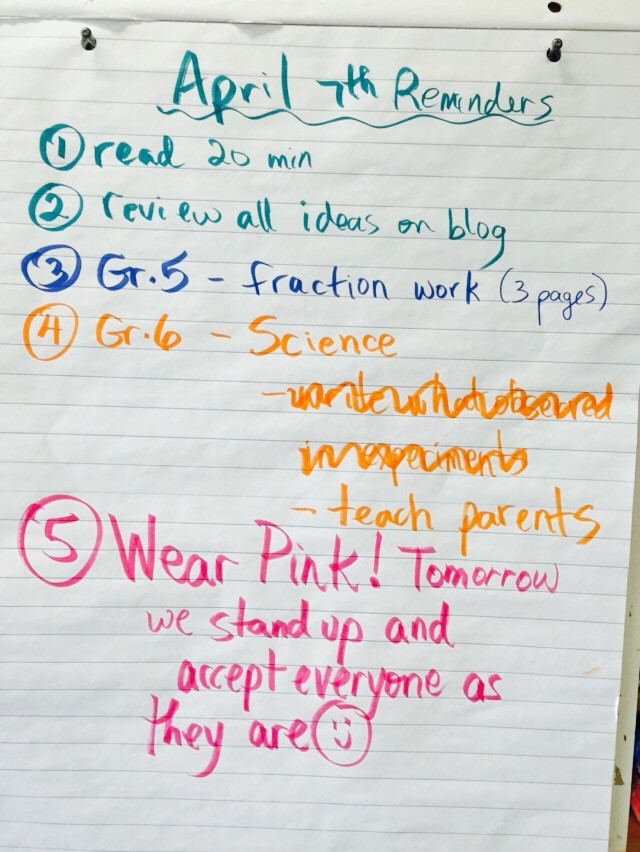 April 7th Reminders
① read 20 min
② review all ideas on blog
③ Gr.5 - fraction work (3 pages)
④ Gr.6 - Science
- write what observed
in experiments
- teach parents
⑤ Wear Pink! Tomorrow
we stand up and
accept everyone as
they are ☺